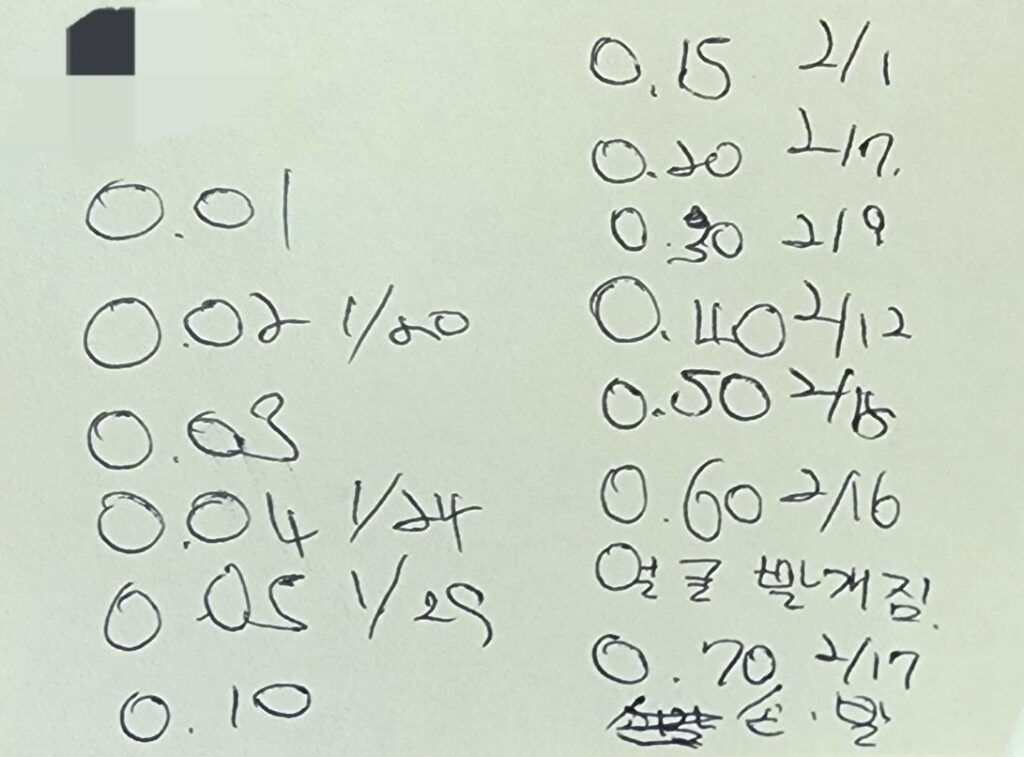 0.01
0.02 1/20
0.03
0.04 1/24
0.05 1/29
0.10
0.15 2/1
0.20 2/7.
0.30 2/9
0.40 2/12
0.50 2/15
0.60 2/16
얼굴 빨개짐.
0.70 2/17
손.발